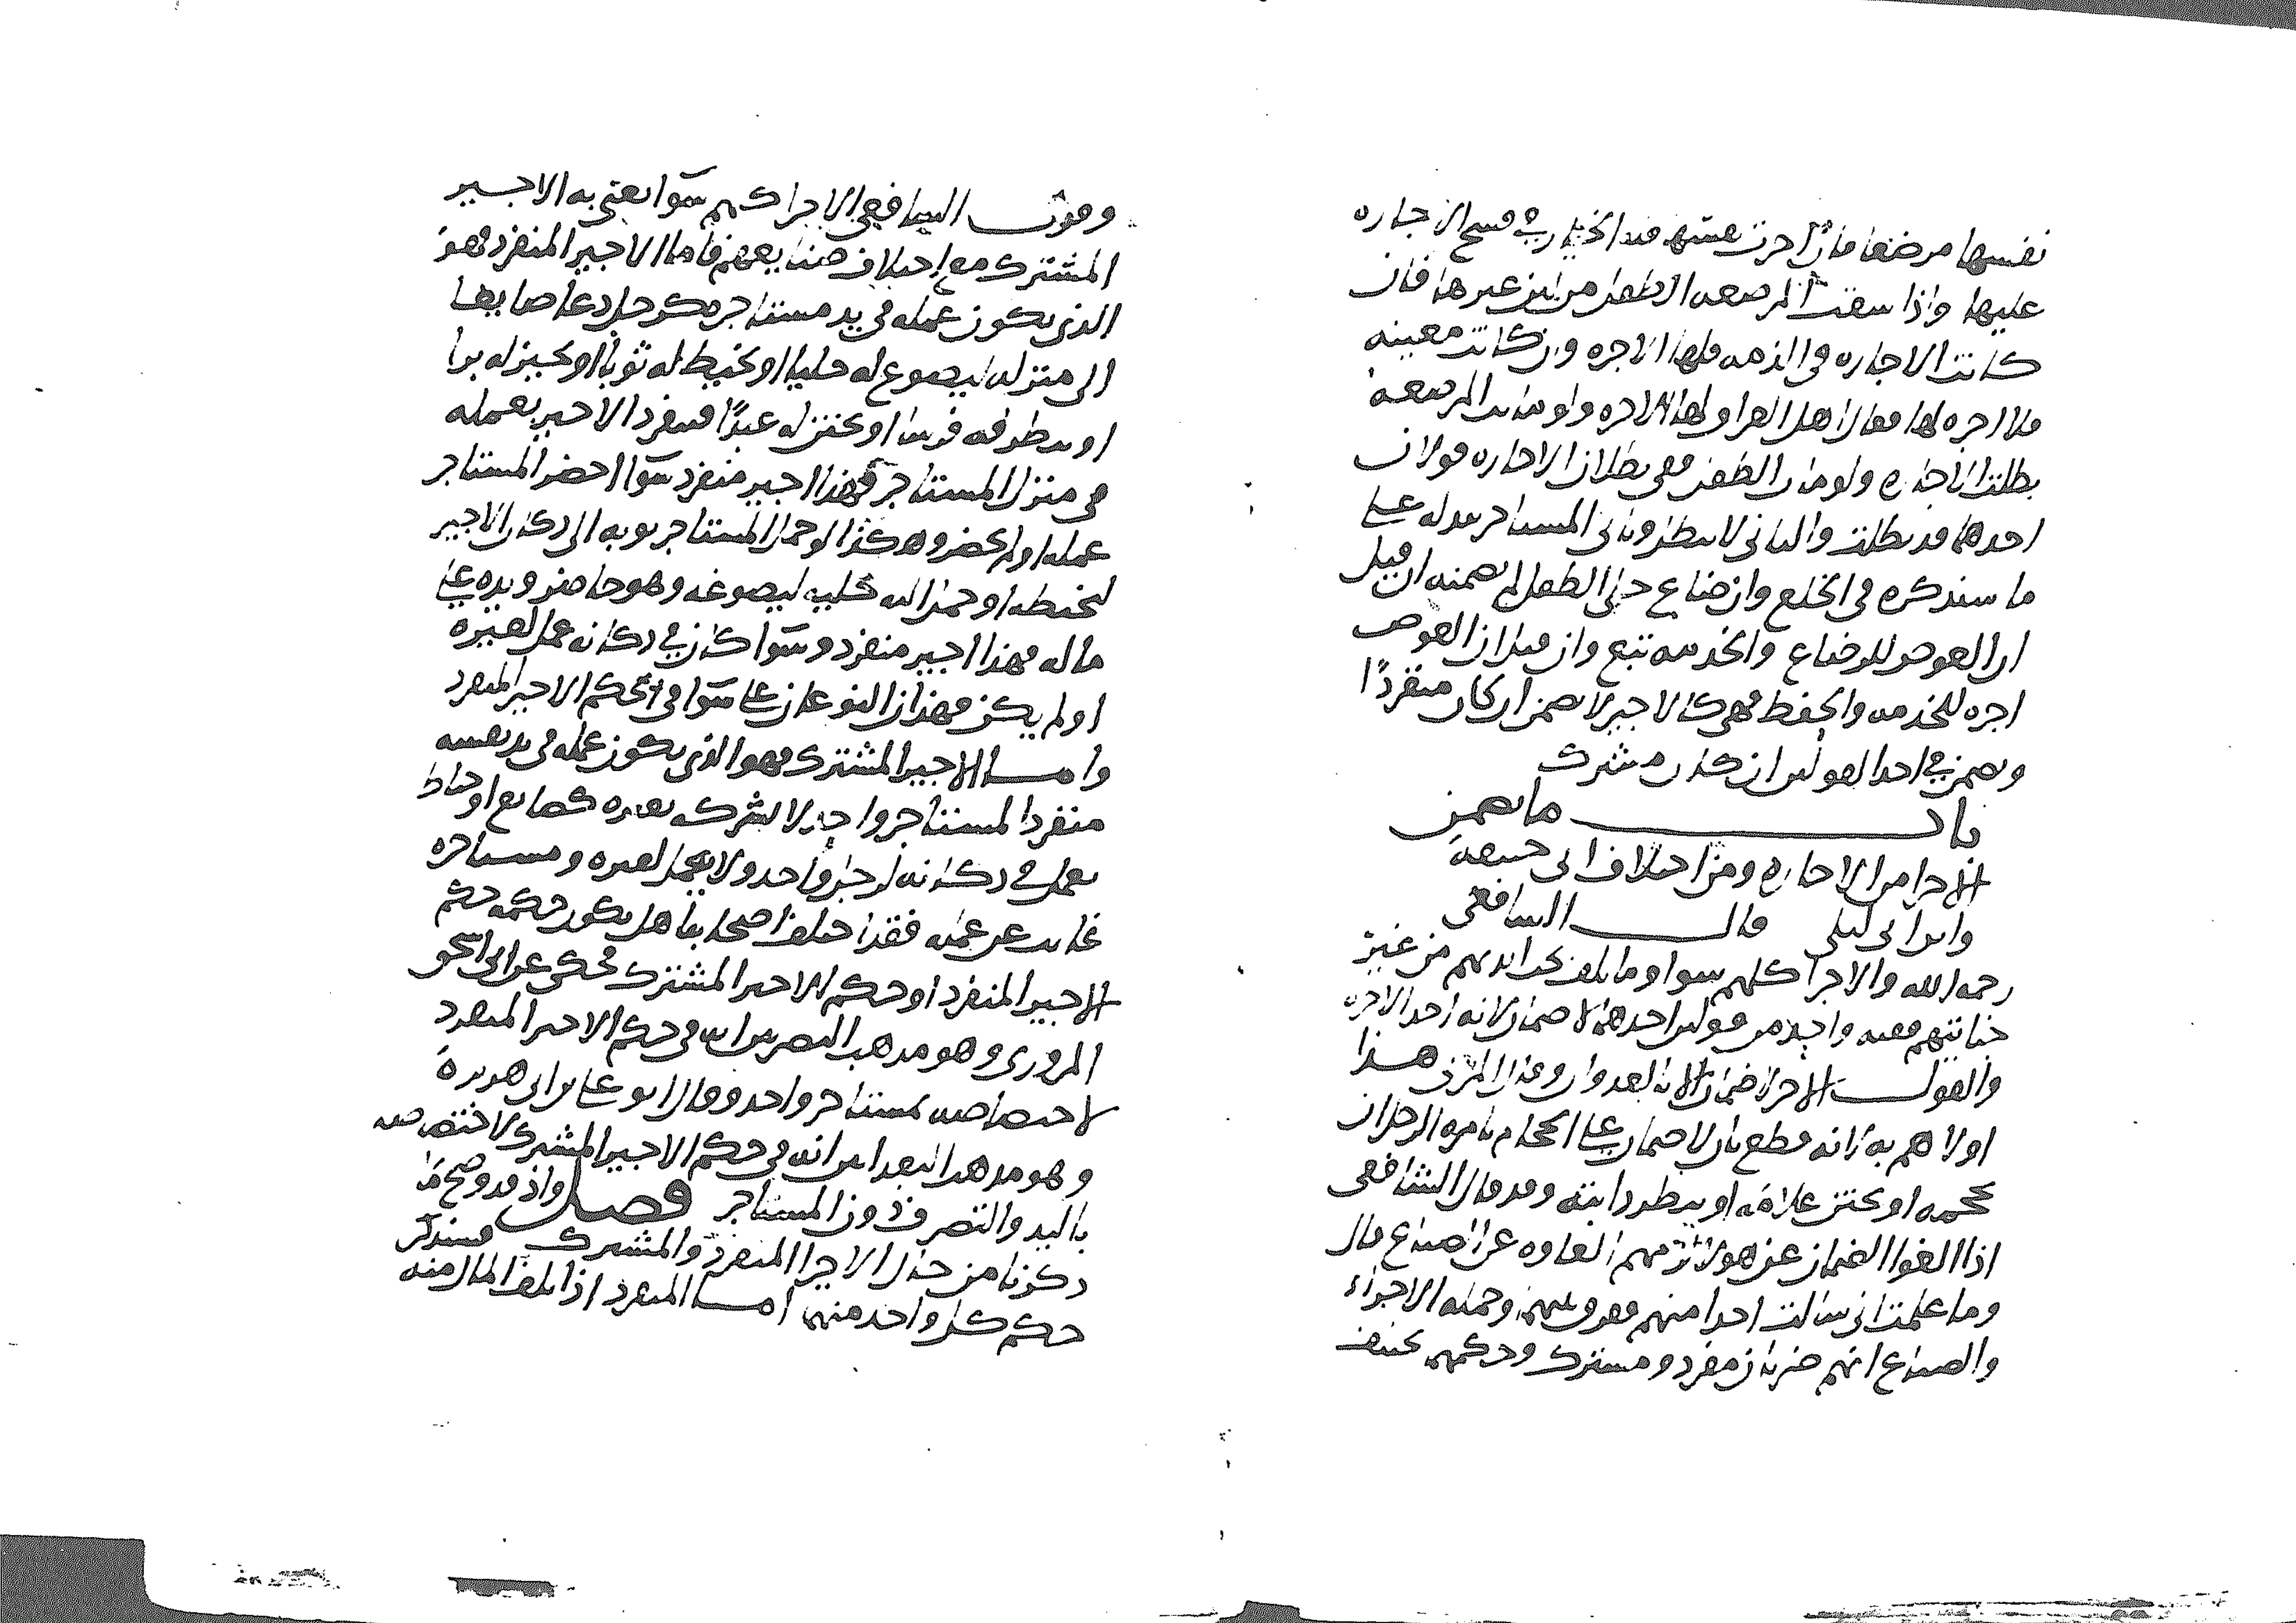 نفسها مرضعا فان اجرت نفسها فله الخيار في فسخ الاجاره
عليها واذا سقت المرضعه الطفل من لبن غيرها فان
كانت الاجاره في الذمه فلها الاجره وان كانت معينه
فلا اجره لها وقال اهل العراق لها الاجره ولو ماتت المرضعه
بطلت الاجاره ولو مات الطفل ففي بطلان الاجاره قولان
احدهما قد بطلت والثاني لا تبطل وياتي المستاجر ببدله على
ما سنذكره في الخلع وان ضاع حلي الطفل لم تضمنه ان قيل
ان العوض للرضاع والخدمه تبع وان قيل ان العوض
اجره للخدمه والحفظ فهي كالاجير لا يضمن ان كان منفردًا
ويضمن في احد القولين ان كان مشترك
باب ما يضمن
الاجرا من الاجاره ومن اختلاف ابي حنيفه
وابن ابي ليلى قال الشافعي
رحمه الله والاجرا كلهم سوا وما تلف في ايديهم من غير
جنايتهم ففيه واحد من قولين احدهما الضمان لانه اخذ الاجره
والقول الاخر لا ضمان الا بالعدوان وقال المزني هذا
اولاهما به لانه قطع بان لا ضمان على الحجام يامره الرجل ان
يحجمه او يختن غلامه او يبيطر دابته وقد قال الشافعي
اذا القوا الضمان عن هولا لزمهم القاوه عن الصناع قال
وما علمت اني سالت احدا منهم ففرق بينهم وجمله الاجراء
والصناع انهم ضربان مفرد ومشترك وحكمهم مختلف
وقول الشافعي الاجرا كلهم سوا يعني به الاجير
المشترك مع اختلاف صنايعهم فاما الاجير المنفرد فهو
الذي يكون عمله في يد مستاجره كرجل دعا صايغا
الى منزله ليصوغ له حليا او يخيط له ثوبا او يخبز له برا
او يبيطر فيه فرسا او يختن له عبدًا فينفرد الاجير بعمله
في منزل المستاجر فهذا اجير منفرد سوا احضر المستاجر
عمله او لم يحضر وهكذا لو حمل المستاجر ثوبه الى دكان الاجير
ليخيطه او حمل اليه حليه ليصوغه وهو حاضر ويده على
ماله فهذا اجير منفرد وسوا كان في دكانه عمل لغيره
او لم يكن فهذان النوعان على سوا في حكم الاجير المنفرد
واما الاجير المشترك فهو الذي يكون عمله في يد نفسه
منفردا لمستاجر واحد لا يشرك بغيره كصايغ او خياط
يعمل في دكانه لرجل واحد ولا يعمل لغيره ومستاجره
غايب عن عمله فقد اختلف اصحابنا هل يكون حكمه حكم
الاجير المنفرد او حكم الاجير المشترك فحكي عن ابي اسحق
المروزي وهو مذهب البصريين انه في حكم الاجير المنفرد
لاختصاصه بمستاجر واحد وقال ابو علي بن ابي هريرة
وهو مذهب البغداديين انه في حكم الاجير المشترك لاختصاصه
باليد والتصرف دون المستاجر فصل واذ قد وضح ما
ذكرنا من حال الاجرا المنفرد والمشترك فسنذكر
حكم كل واحد منهما اما المنفرد اذا تلف المال منه